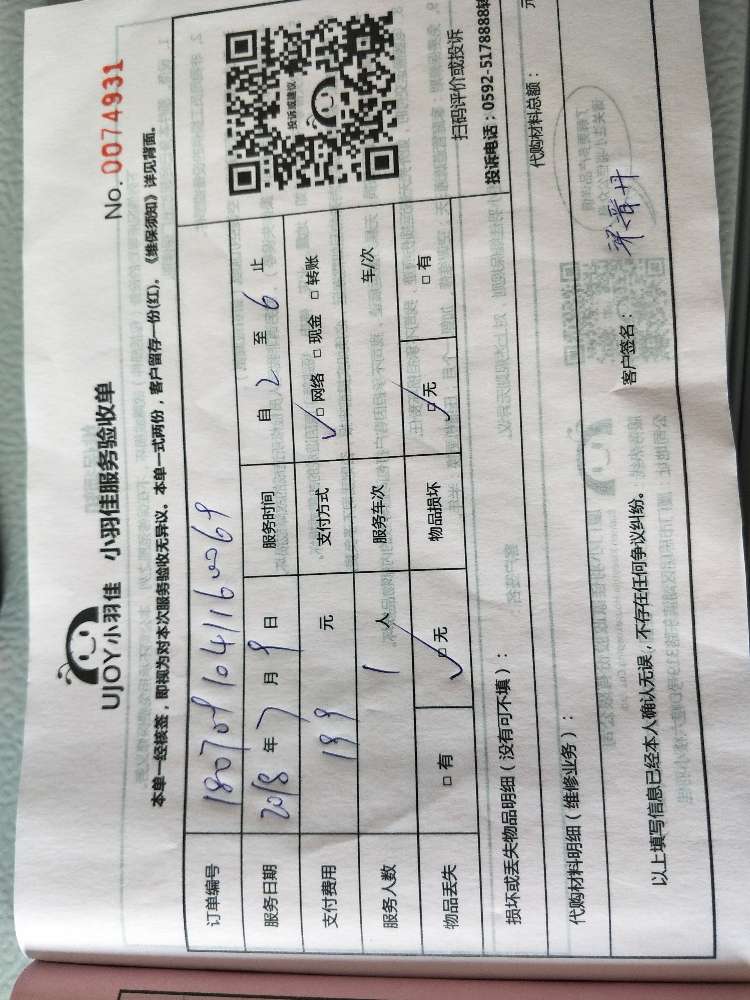 UJOY小羽佳 小羽佳服务验收单
No. 0074931
本单一经核签，即视为对本次服务验收无异议。本单一式两份，客户留存一份(红)。《维保须知》详见背面。
订单编号 180709104116069
服务日期 2018 年 7 月 9 日 服务时间 自 2 至 6 止
支付费用 199 元 支付方式 □ 网络 □ 现金 □ 转账
服务人数 1 人 服务车次 车/次
物品丢失 □ 有 □ 无 物品损坏 □ 无 □ 有
投诉或建议
扫码评价或投诉
投诉电话：0592-5178888转
损坏或丢失物品明细（没有可不填）：
代购材料明细（维修业务）： 代购材料总额： 元
以上填写信息已经本人确认无误，不存在任何争议纠纷。
客户签名：